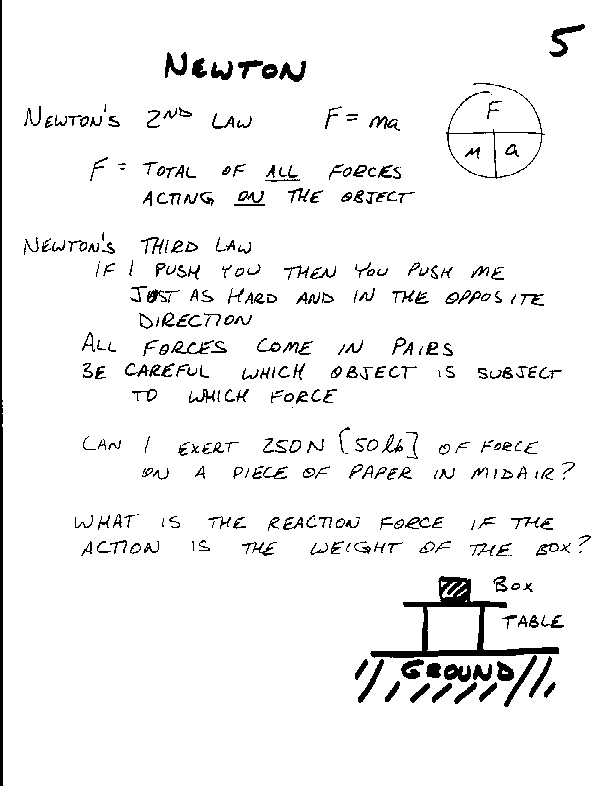 5
NEWTON
NEWTON'S 2ND LAW F = ma
F
M a
F = TOTAL OF ALL FORCES
ACTING ON THE OBJECT
NEWTON'S THIRD LAW
IF I PUSH YOU THEN YOU PUSH ME
JUST AS HARD AND IN THE OPPOSITE
DIRECTION
ALL FORCES COME IN PAIRS
BE CAREFUL WHICH OBJECT IS SUBJECT
TO WHICH FORCE
CAN I EXERT 250N [50 lb] OF FORCE
ON A PIECE OF PAPER IN MIDAIR?
WHAT IS THE REACTION FORCE IF THE
ACTION IS THE WEIGHT OF THE BOX?
BOX
TABLE
GROUND